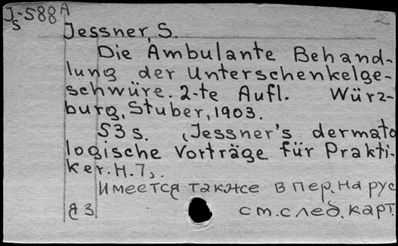 J-588A
s
Jessner, S.
Die Ambulante Behand-
lung der Unterschenkelge-
schwüre. 2-te Aufl. Würz-
burg, Stuber, 1903.
53 s. (Jessner's dermato
logische Vorträge für Prakti-
ker. H. 7).
Имеется также в пер. на рус
я 3 см. след. карт.